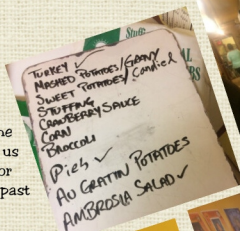 Stuffi
TURKEY ✓
MASHED POTATOES/GRAVY
SWEET POTATOES/Candied
STUFFING
CRANBERRY SAUCE
CORN
BROCCOLI
Pies ✓
AU GRATIN POTATOES
AMBROSIA SALAD ✓
us
or
past